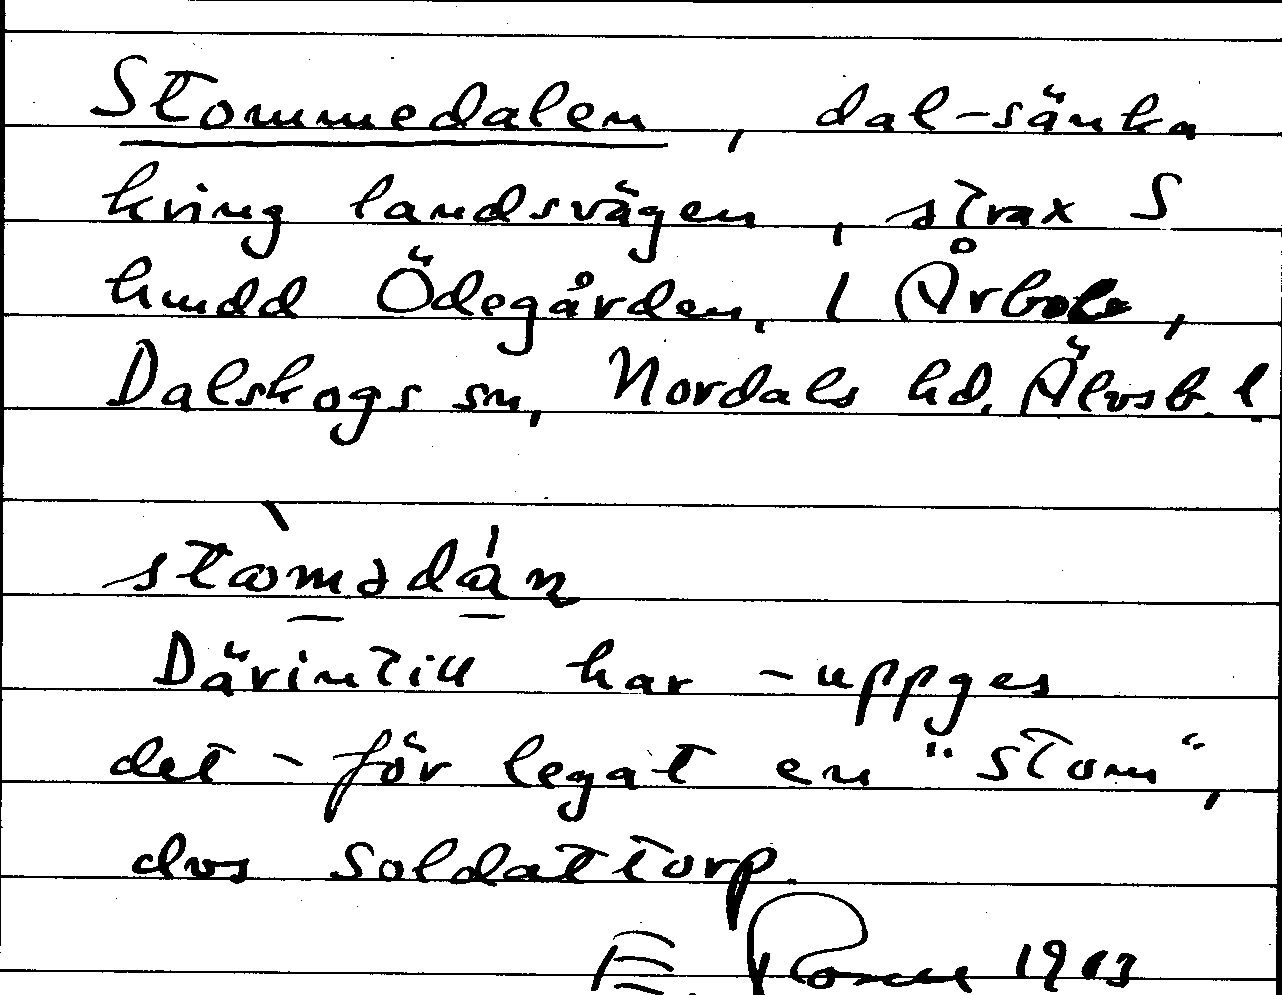 Stommedalen, dal-sänka
kring landsvägen, strax S
hmdd Ödegården, 1 Årbole,
Dalskogs sn, Nordals hd. Älvsb. l.
Därintill har - uppges
det - för legat en "stom",
dvs soldattorp.
E.